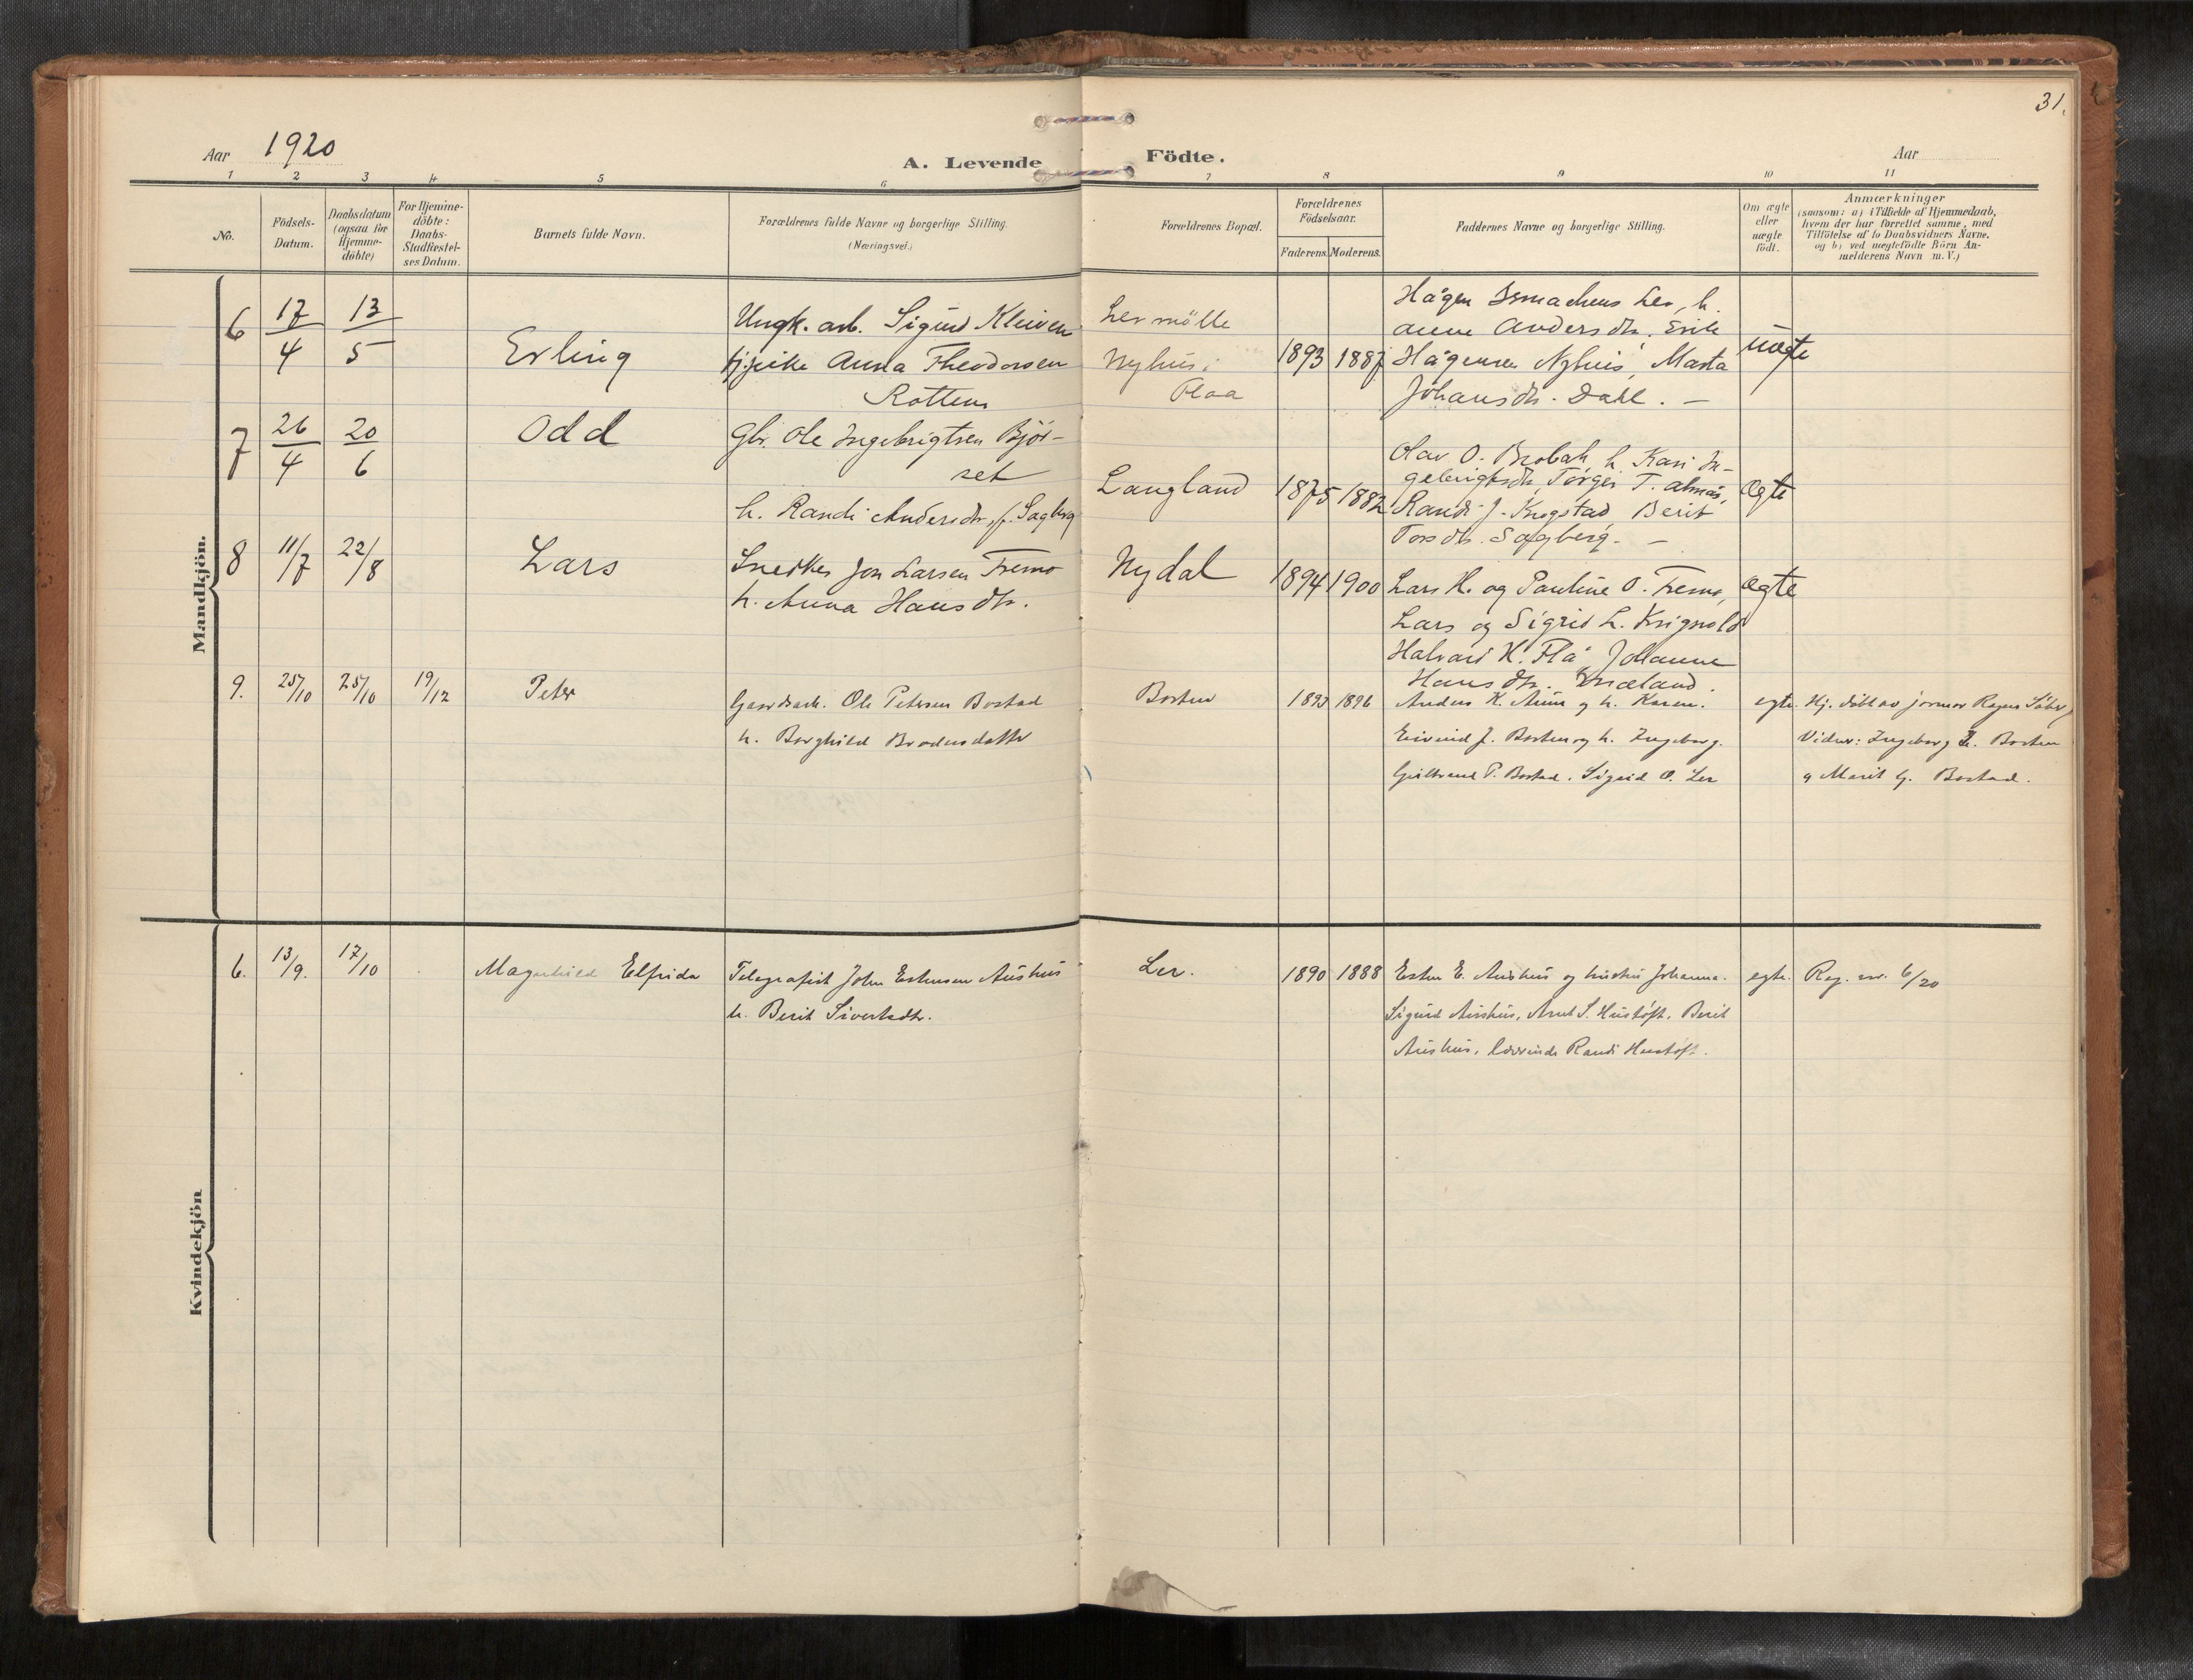 31.
Aar 1920
A. Levende Födte.
Aar
1 2 3 4 5 6 7 8 9 10 11
No.
Födsels-
Datum.
Daabsdatum
(ogsaa for
Hjemme-
döbte)
For Hjemme-
döbte:
Daabs-
Stadfestel-
ses Datum.
Barnets fulde Navn.
Forældrenes fulde Navne og borgerlige Stilling.
(Næringsvei.)
Forældrenes Bopæl.
Forældrenes
Födselsaar.
Faderens. Moderens.
Faddernes Navne og borgerlige Stilling.
Om ægte
eller
uægte
födt.
Anmærkninger
(saasom: a) i Tilfælde af Hjemmedaab,
hvem der har forrettet samme, med
Tilföielse af to Daabsvidners Navne,
og b) ved uægtefödte Börn An-
melderens Navn m. V.)
Mandkjön.
6 17/4 13/5 Erling
Ungk. arb. Sigurd Kleiven
pike Anna Theodorsen
Rotten
Ler mölle
Nyhus,
Flaa
1893 1887
Hågen Ler, h.
Anne Andersdtr. Erik
Hågensen Nyhus, Marta
Johansdtr. Dahl. –
uægte
7 26/4 20/6 Odd
Gbr. Ole Ingebrigtsen Björ-
set
h. Randi Andersdtr. f. Sagberg
Langland
1875 1882
Olav O. Brobak h. Kari In-
gebrigtsdtr, Torger T. Almås,
Randi J. Krogstad, Berit
Torsdtr. Sagberg. –
ægte
8 11/7 22/8 Lars
Snedker Jon Larsen Fremo
h. Anna Hansdtr.
Nydal
1894 1900
Lars H. og Pauline O. Fremo,
Lars og Sigrid L.
Halvard K. Flå, Johanne
Hansdtr. Kvæland.
ægte
9. 25/10 25/10 19/12 Peter
Gaardsarb. Ole Petersen Bostad
h. Borghild Brodersdatter
Borten
1893 1896
Anders K. Aune og h. Karen.
Eivind J. Borten og h. Ingeborg.
P. Bostad. Sigrid O. Ler
egte.
Hj. döbt av jormor
Vidner: Ingeborg Borten
og Marit G. Bostad.
Kvindekjön
6. 13/9. 17/10 Magnhild Elfrida
Telegrafist John Estensen Aushus
h. Berit Sivertsdtr.
Ler.
1890 1888
Esten E. Aushus og hustru Johanna.
Sigurd Aushus, Arnt S. Hustöft. Berit
Aushus, lærerinde Randi Hustöft.
egte.
Reg. nr. 6/20